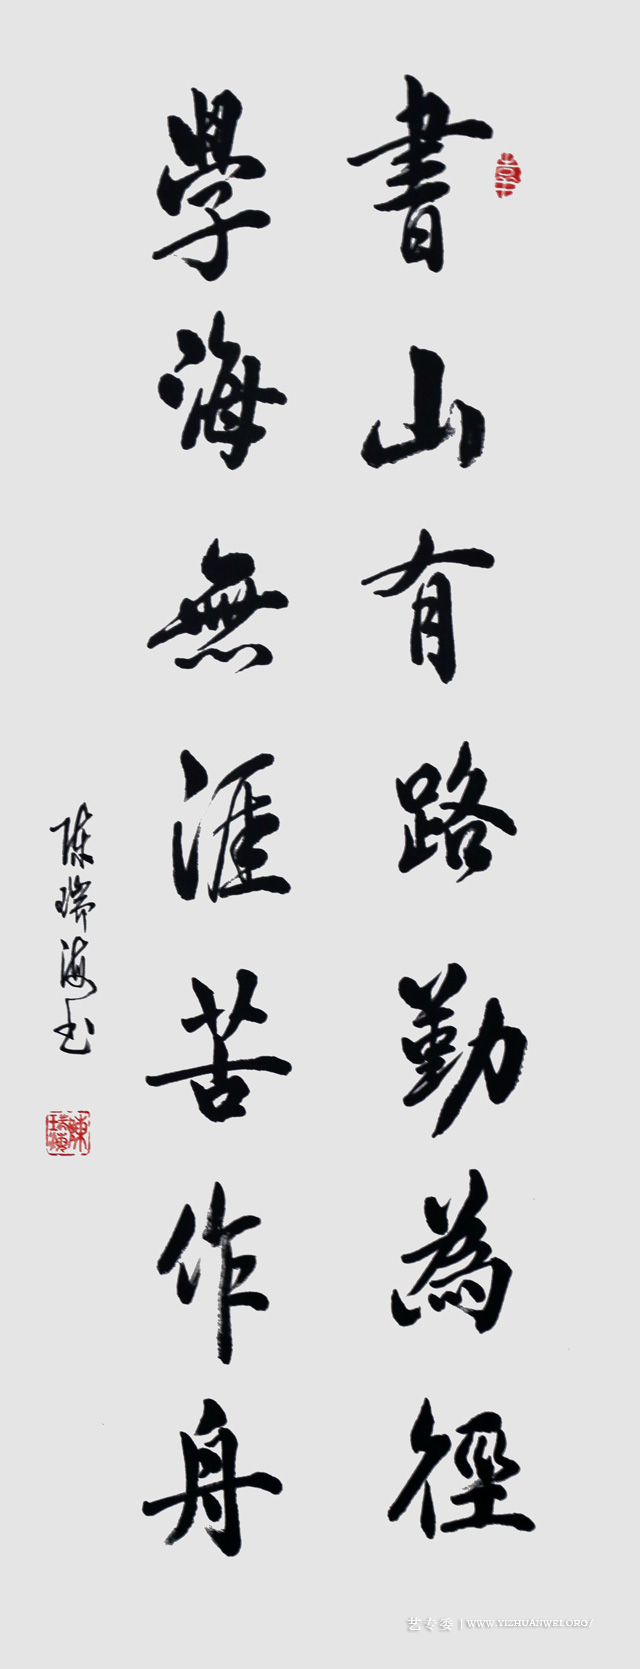 書山有路勤為徑
學海無涯苦作舟
陈瑞海书
陳瑞海
艺专委 | WWW.YIZHUANWEI.ORG/